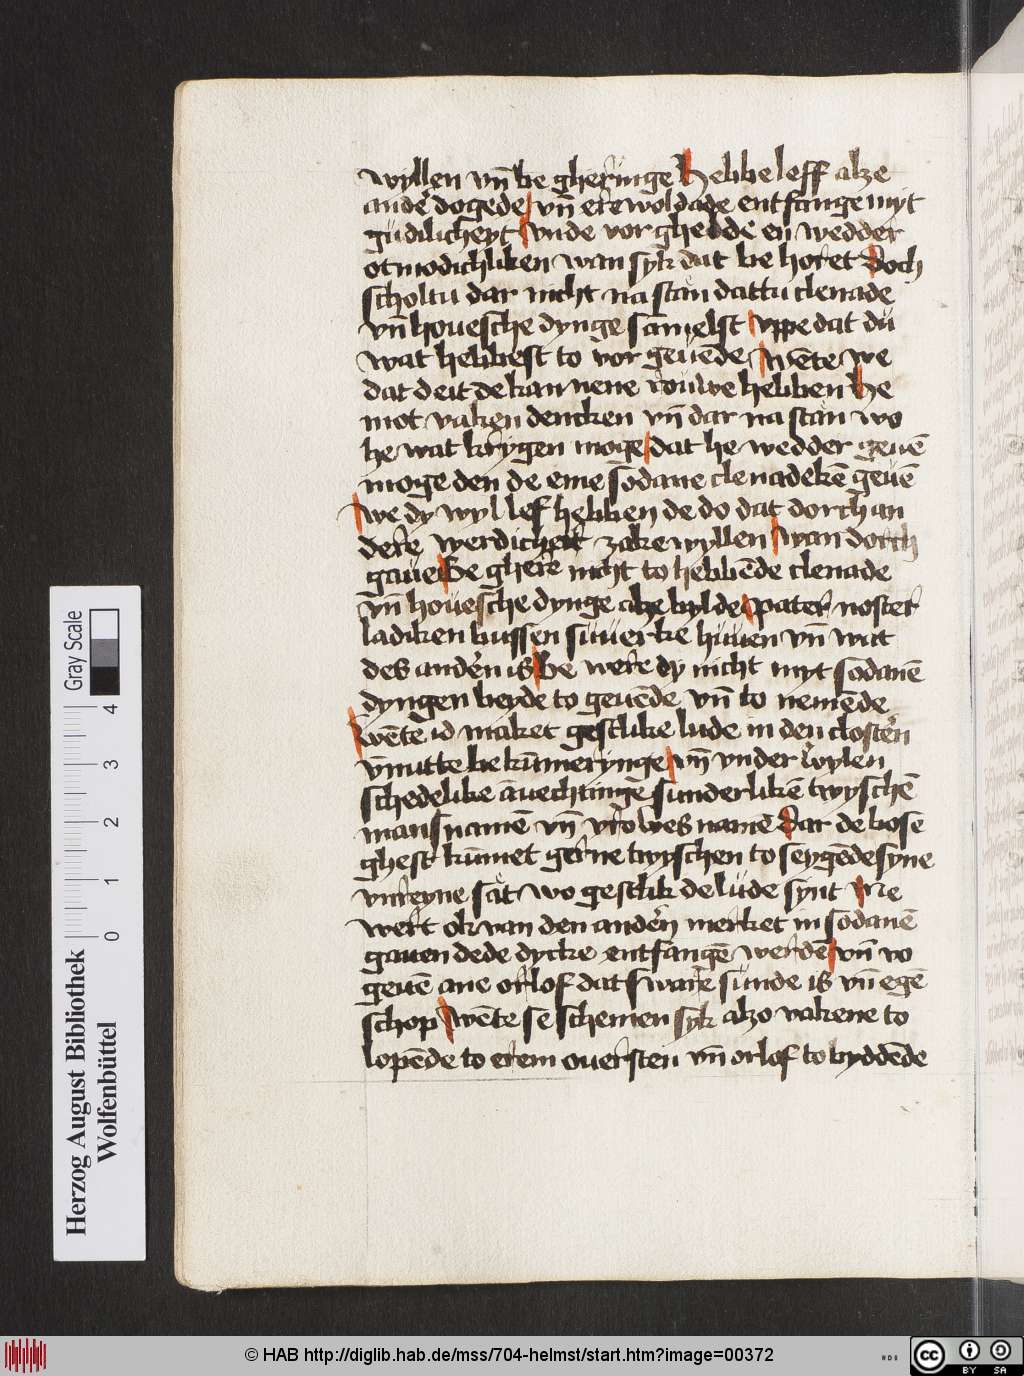 wyllen vn̄ be gheringe Hebbe leff alze
ander dogede vn̄ ere woldade entfange myt
gudlicheyt vnde vor ghedde en wedder
otmodichliken wan syk dat be horet Doch
scholtu dar nicht na stan dattu clenade
vn̄ houesche dynge samelst vppe dat du
wat hebbest to vor geuēde wēte we
dat deit de kan nene rouwe hebben He
mot vaken dencken vn̄ dar na stan wo
he wat krygen moge dat he wedder geuē
moge den de eme sodane clenadekē geuē
we dy wyl lef hebben de do dat dorch an
dere werdicheit zake wyllen wan dorch
gaue Be ghere nicht to hebbēde clenade
vn̄ houesche dynge alze bylde pater noster
ladiken bussen suuerke huuen vn̄ wat
des ander is Be were dy nicht myt sodanē
dyngen beyde to geuēde vn̄ to nemēde
wēte id maket gestlike lude in den closterē
vnnutte bekūmerynge vn̄ vnder wylen
schedelike āuechtingē sunderlikē twyschē
mansnamē vn̄ vrowes namē Dar de bose
ghest kūmet gerne twyschen to seygēde syne
vnreyne sat wo gestlik de lude synt Me
wert ok van den anderē merket in sodanē
gauen de de dycke entfangē werdē vn̄ vo
geuē ane orlof dat sware sunde is vn̄ egē
schop wēte se schemen syk alzo vakene to
lopēde to erem ouersten vn̄ orlof to byddēde
Gray Scale
0 1 2 3 4
Herzog August Bibliothek
Wolfenbüttel
© HAB http://diglib.hab.de/mss/704-helmst/start.htm?image=00372
cc BY SA